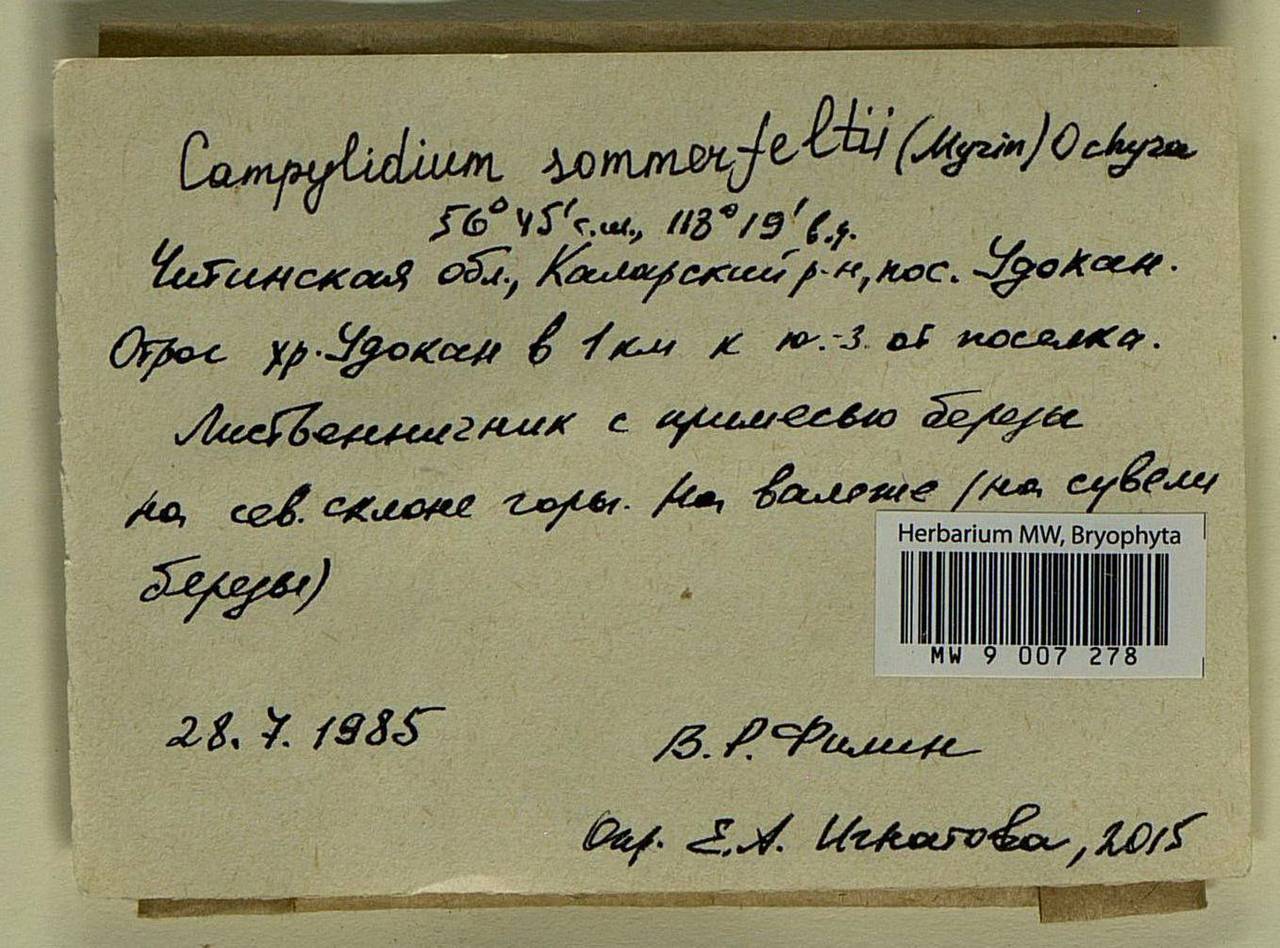 Campylidium sommerfeltii (Myrin) Ochyra
56°45′ с.ш., 118°19′ в.д.
Читинская обл., Каларский р-н, пос. Удокан.
Отрог хр. Удокан в 1 км к ю.-з. от поселка.
Лиственничник с примесью березы
на сев. склоне горы. На валеже (на сувели
березы)
Herbarium MW, Bryophyta
MW 9 007 278
28.7.1985
В.Р. Филин
Опр. Е.А. Игнатова, 2015